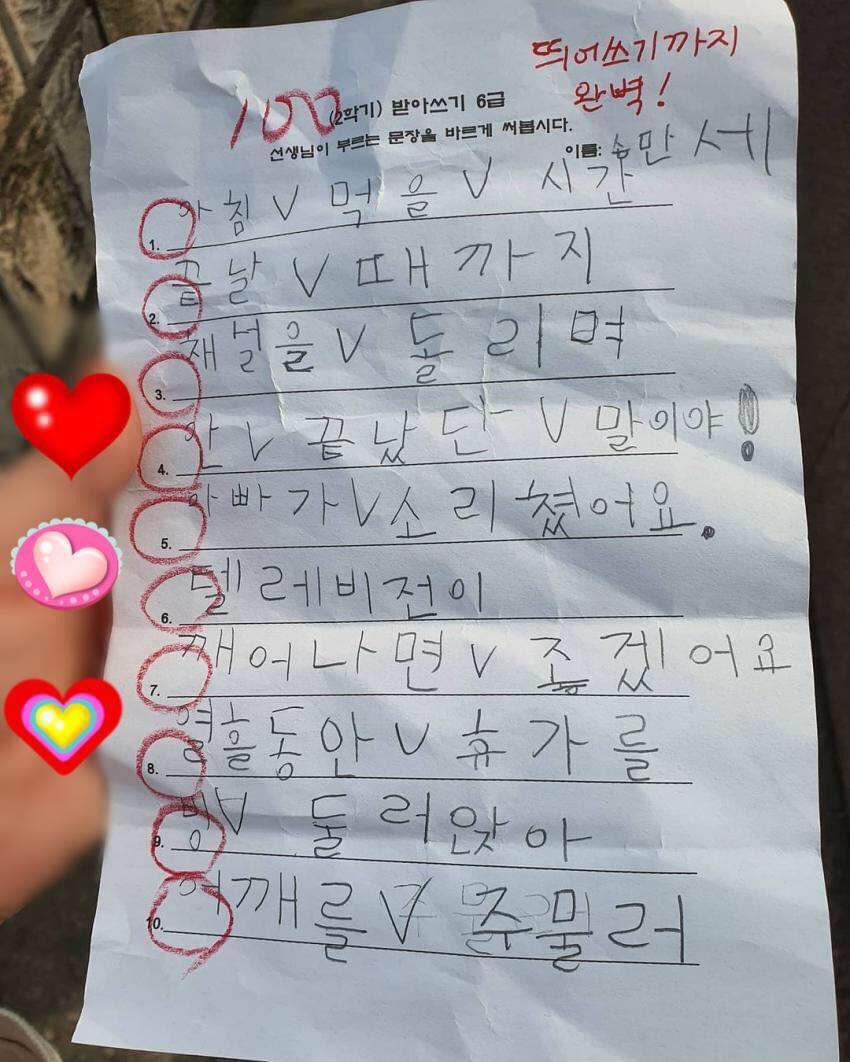 띄어쓰기까지
완벽!
100
(2학기) 받아쓰기 6급
선생님이 부르는 문장을 바르게 써봅시다.
이름: 송만세
1. 아침∨먹을∨시간
2. 끝날∨때까지
3. 채널을∨돌리며
4. 안∨끝났단∨말이야!
5. 아빠가∨소리쳤어요.
6. 텔레비전이
7. 깨어나면∨좋겠어요
8. 열흘동안∨휴가를
9. 빙∨둘러앉아
10. 어깨를∨주물러